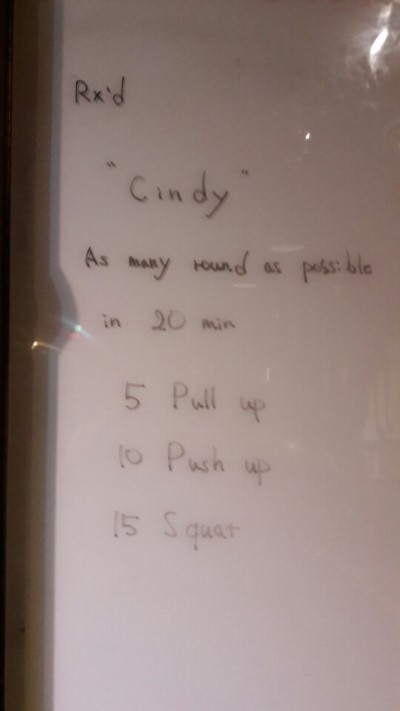 Rx'd
"Cindy"
As many round as possible
in 20 min
5 Pull up
10 Push up
15 Squat